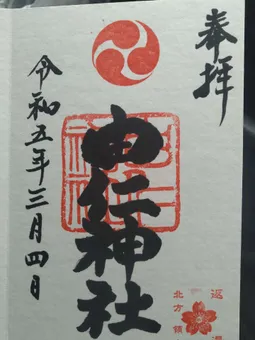 奉拝
由仁神社
令和五年三月四日
北方領
返還